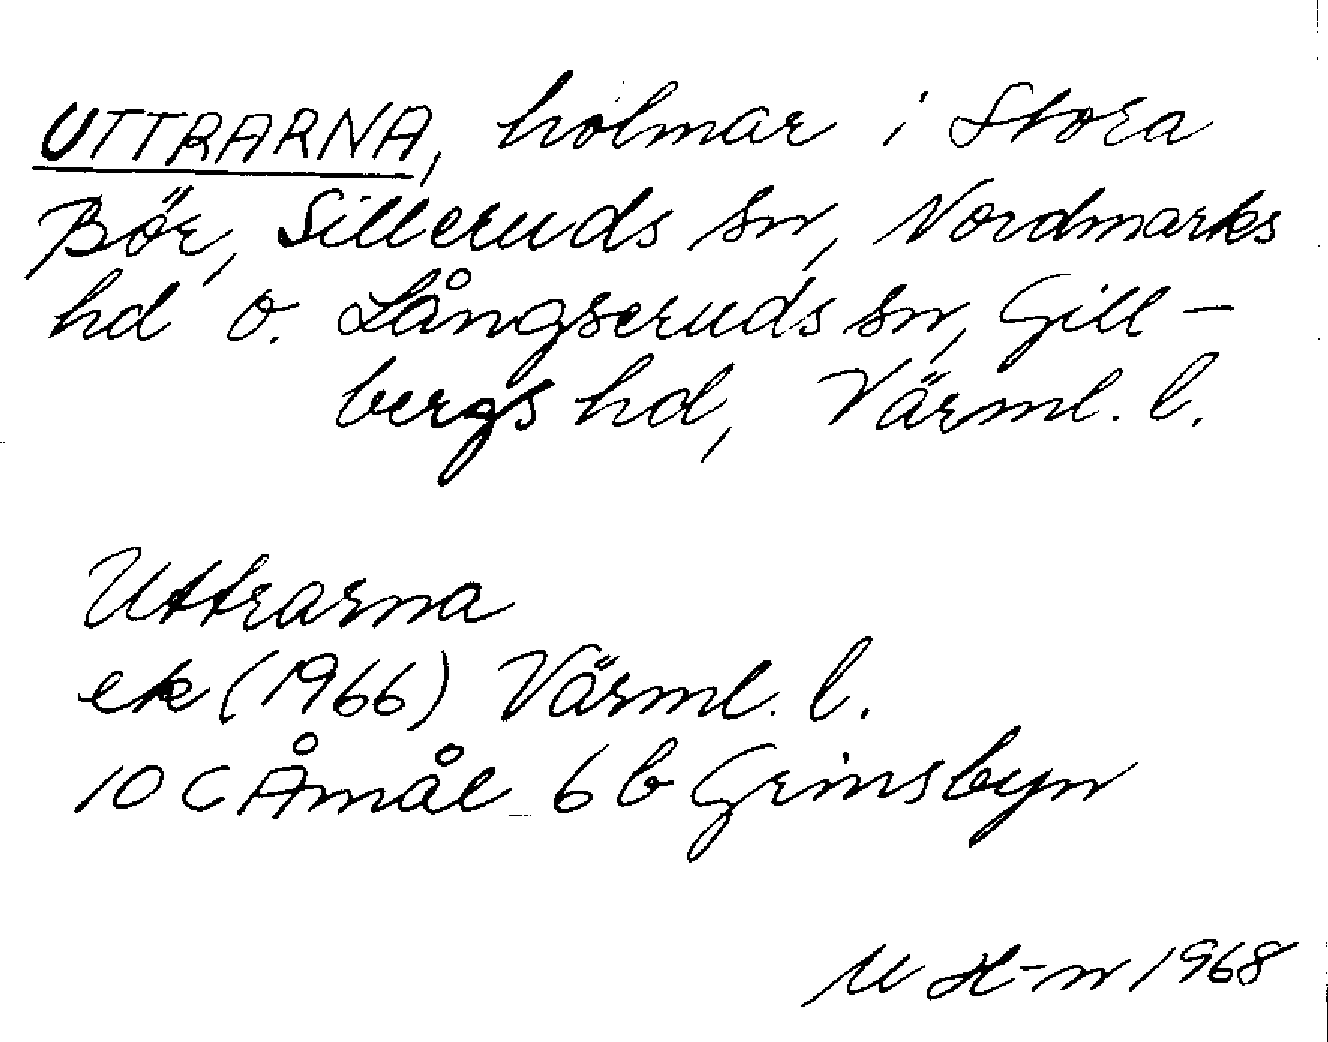 UTTRARNA, holmar i Stora
Bör, Silleruds sn, Nordmarks
hd o. Långseruds sn, Gill-
bergs hd, Värml. l.
Uttrarna
ek (1966) Värml. l.
10 C Åmål 6 b Grinsbyn
M H-n 1968